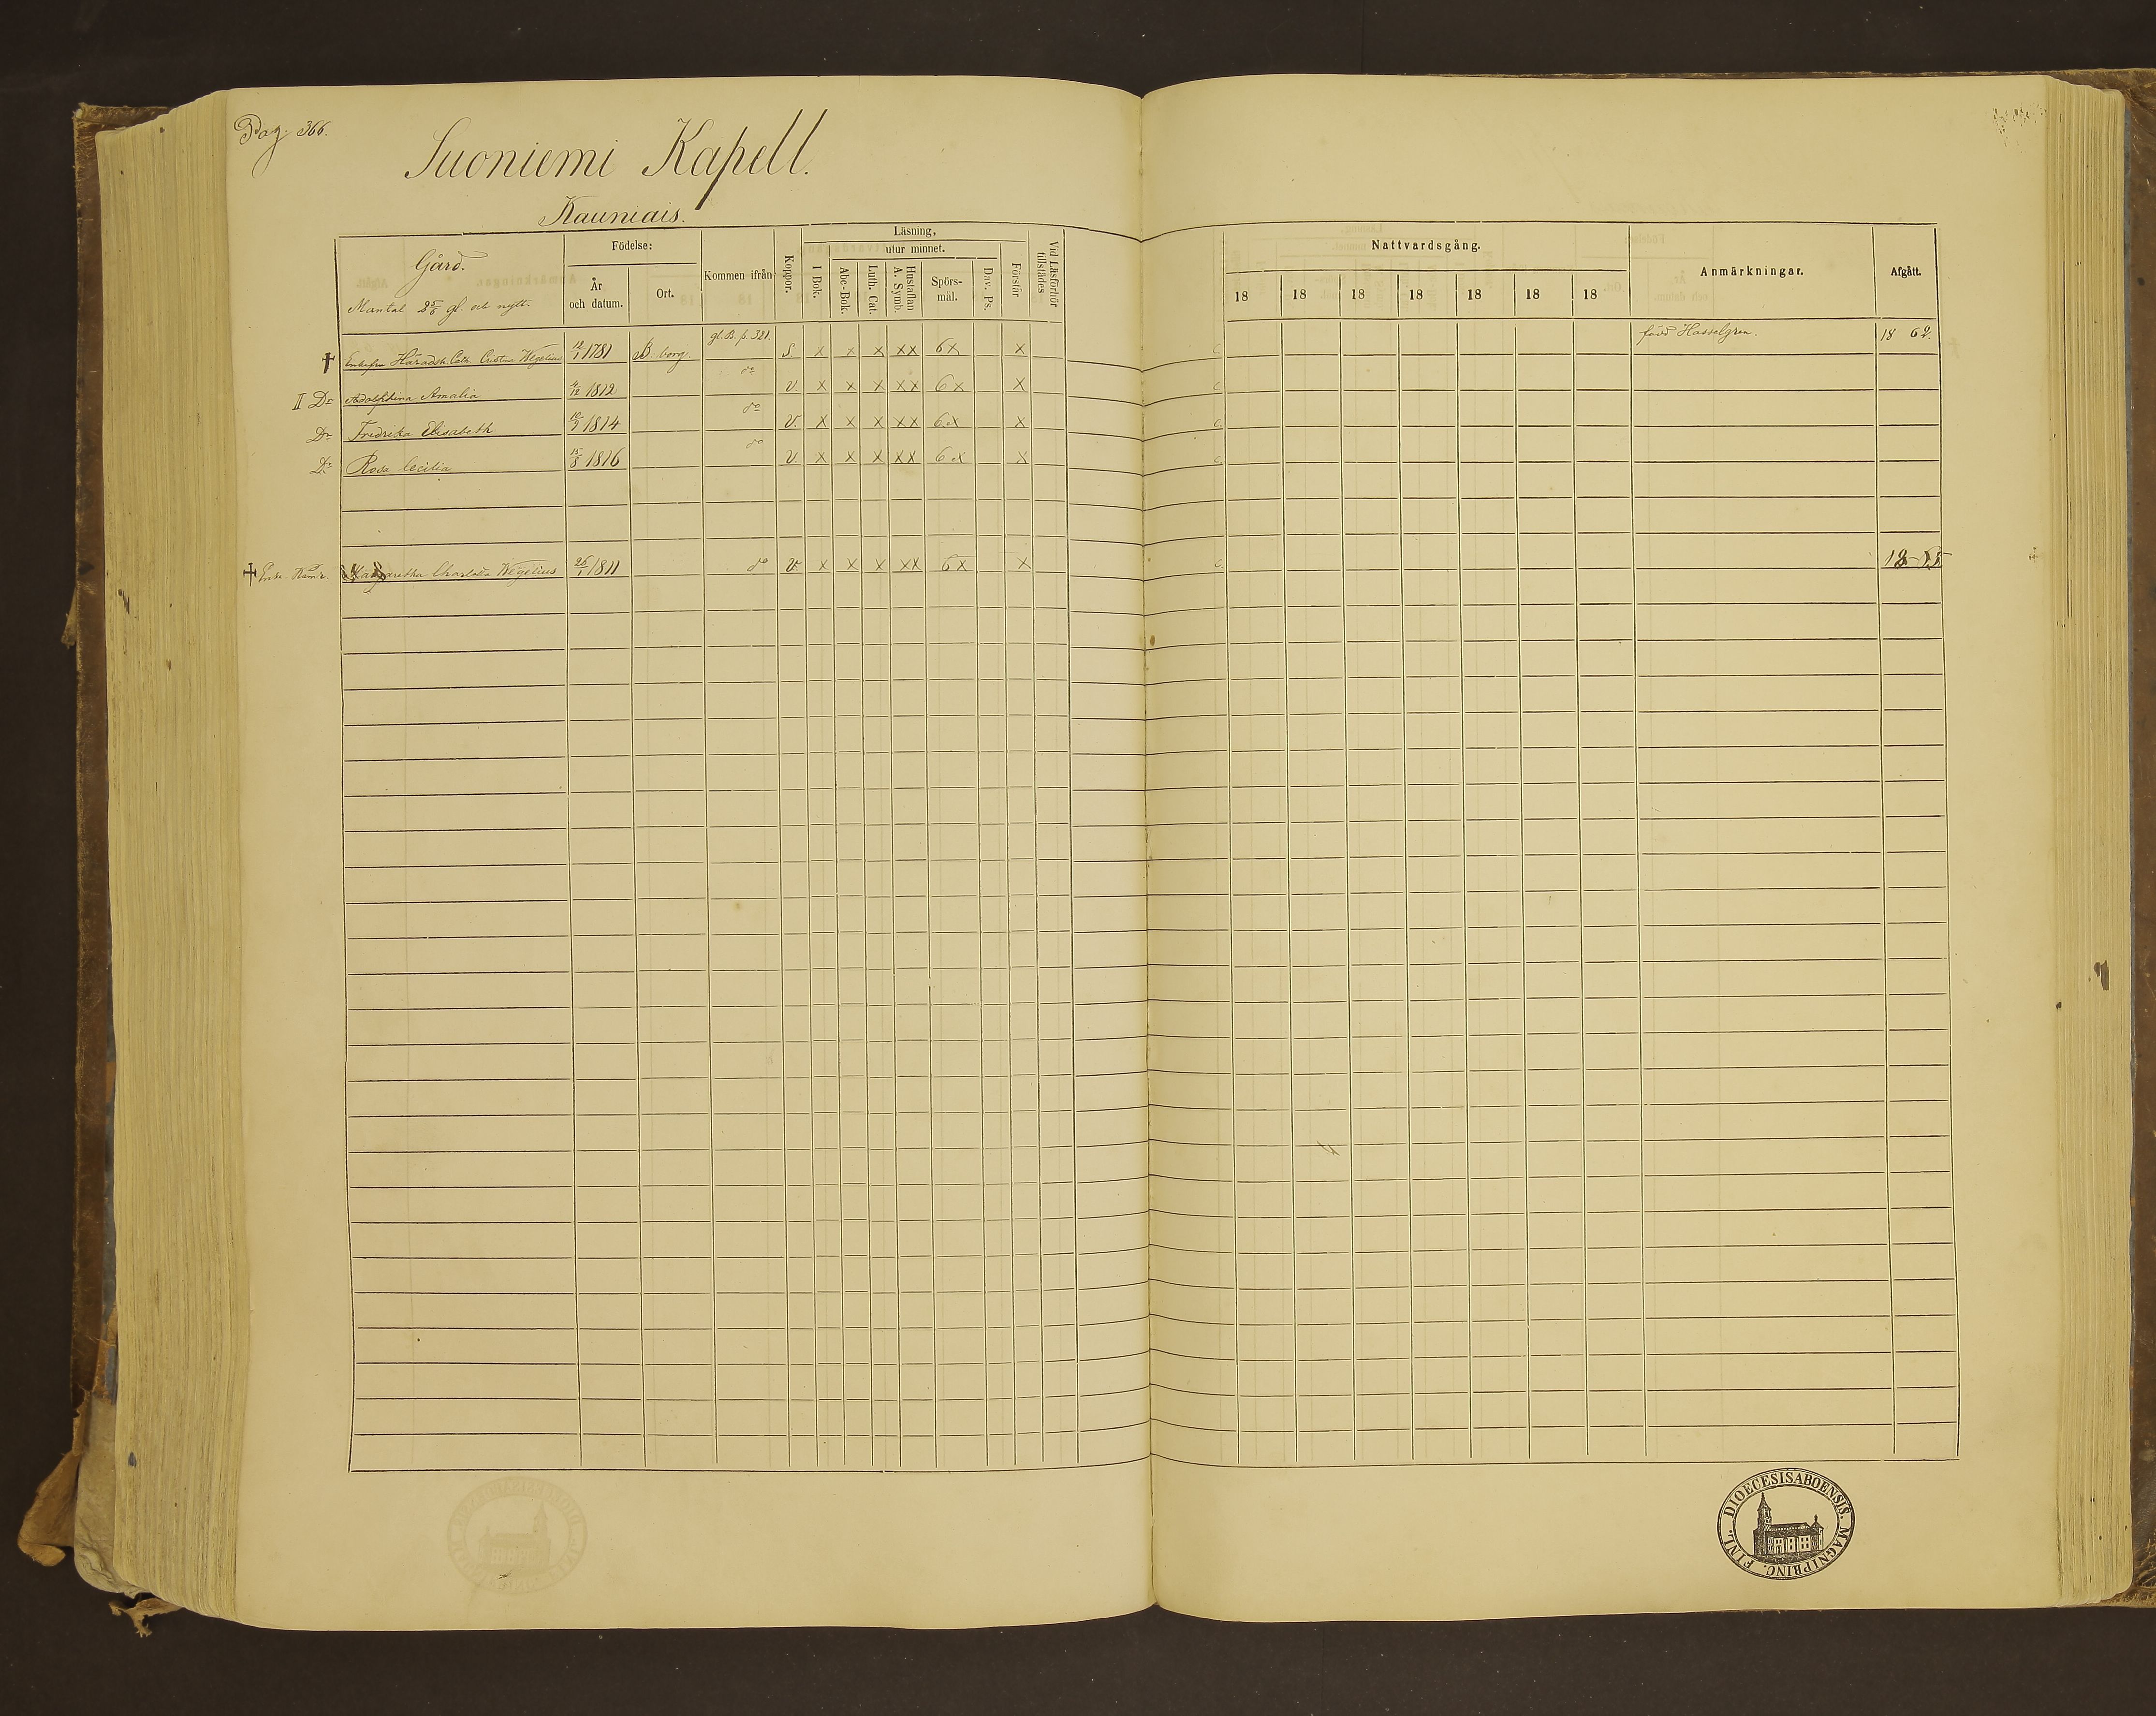 Pag. 366.
Suoniemi Kapell.
Kauniais.
Gård.
Mantal 2 5/6 gl. och nytt.
Födelse:
År och datum.
Ort.
Kommen ifrån
Koppor.
Läsning,
utur minnet.
I Bok.
Abc-Bok.
Luth. Cat.
Hustaflan A. Symb.
Spörs-mål.
Dav. Ps.
Förstår
Vid Läsförhör tillstädes
Nattvardsgång.
18 18 18 18 18 18 18
Anmärkningar.
Afgått.
† Enkefru Häradsh. Cath. Cristina Wegelius 12/1 1781 B:borg. gl. B. p. 321. S. x x x xx 6x x född Hasselgren. 18 62.
II Dr Adolphina Amalia 1812 do v. x x x xx 6x x
Dr Fredrika Elisabeth 1814 do v. x x x xx 6x x
Dr Rosa Cecilia 15/8 1816 do v. x x x xx 6x x
† Margaretha Charlotta Wegelius 26/1 1811 do v. x x x xx 6x x 18 65
DIOECESIS ABOENSIS. MAGNI PRINC. FINL.